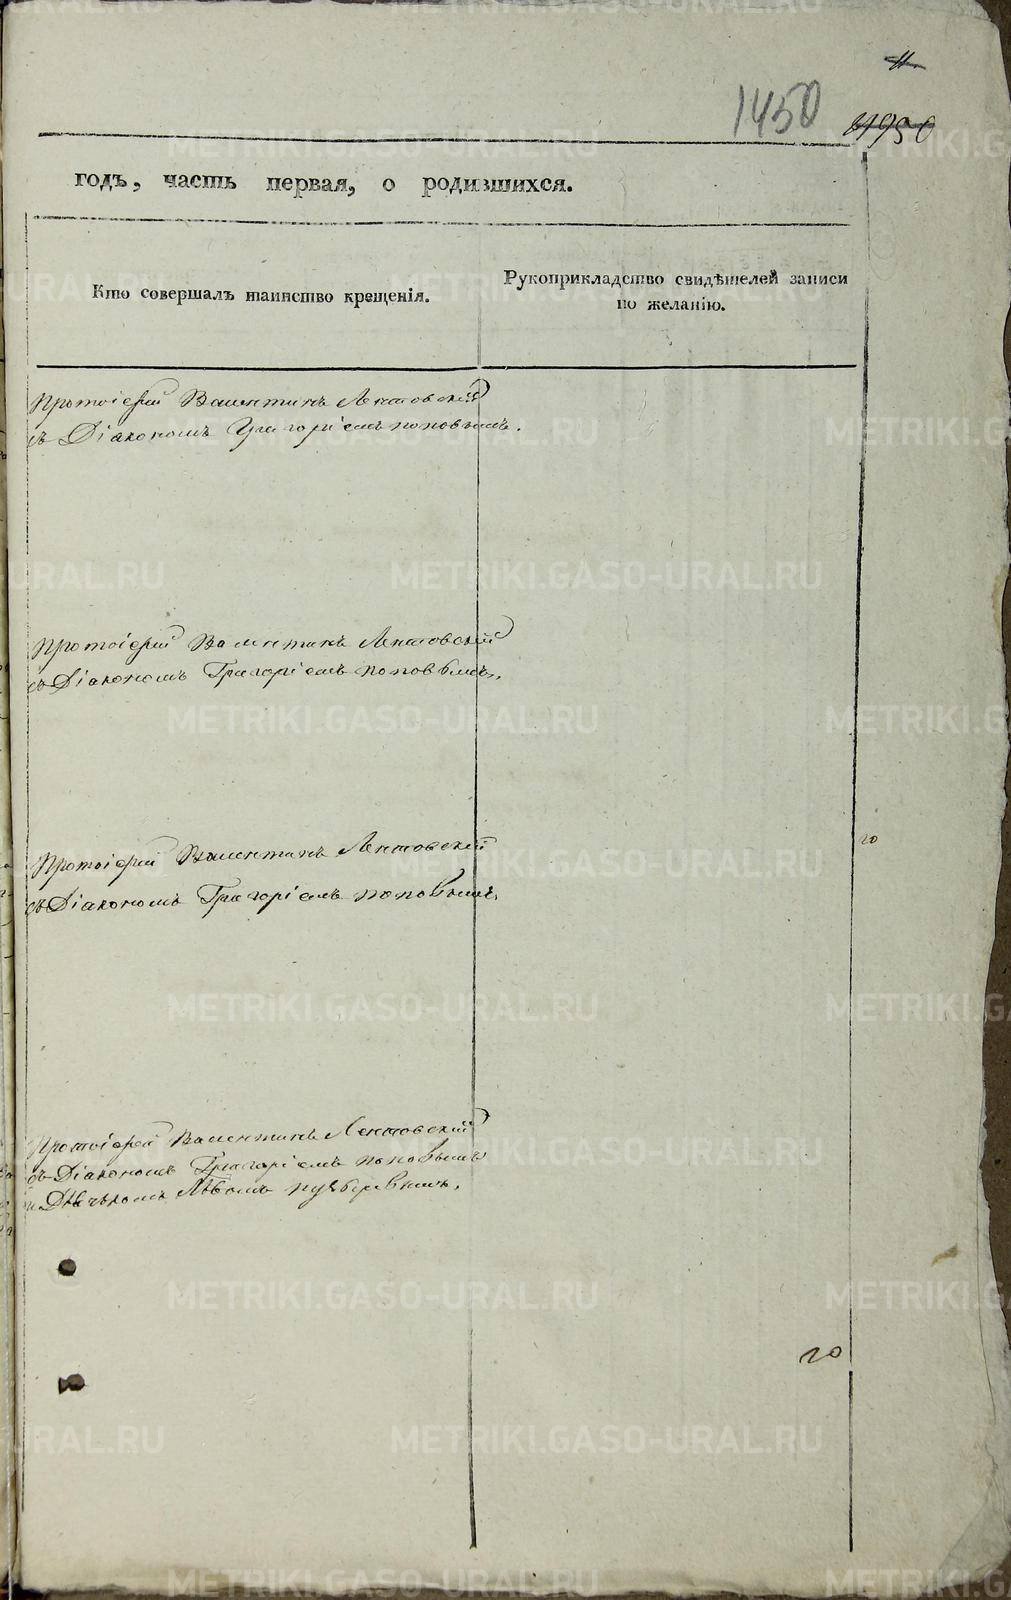 1450
годъ, часть первая, о родившихся.
Кто совершалъ таинство крещенія.
Рукоприкладство свидѣтелей записи
по желанію.
Протоіерей Валентинъ Лентовскій
съ Діакономъ Григоріемъ поповымъ.
Протоіерей Валентинъ Лентовскій
съ Діакономъ Григоріемъ поповымъ,
Протоіерей Валентинъ Лентовскій
съ Діакономъ Григоріемъ поповымъ,
Протоіерей Валентинъ Лентовскій
съ Діакономъ Григоріемъ поповымъ
и Дьячькомъ
METRIKI.GASO-URAL.RU